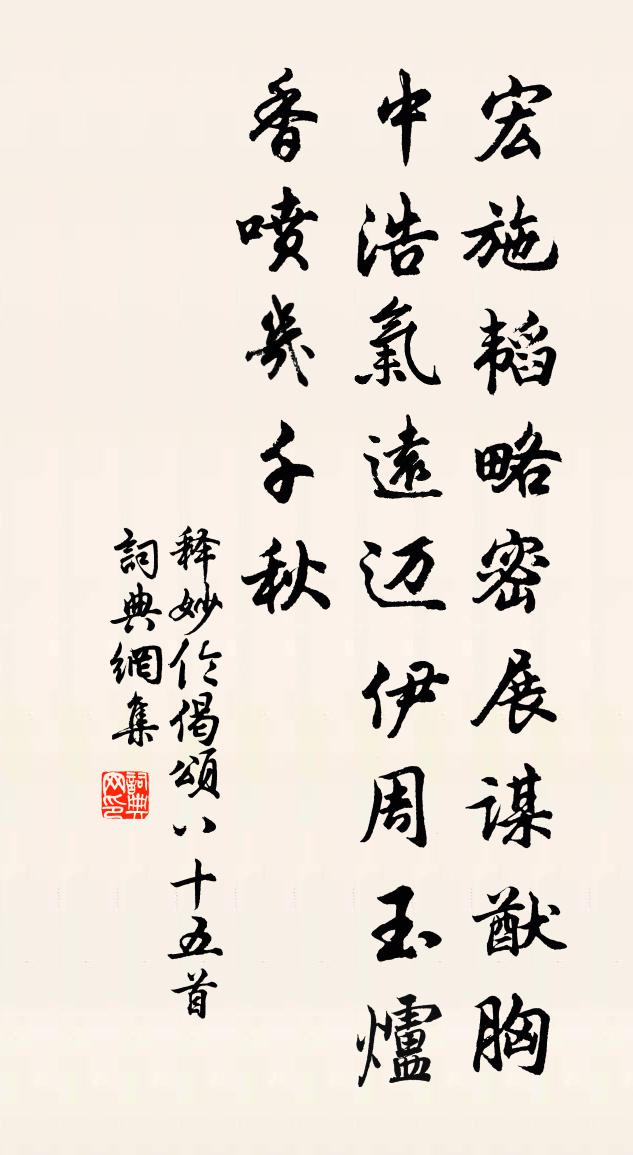 宏施韬略密展谋猷胸
中浩氣遠迈伊周玉爐
香噴幾千秋
释妙伦偈頌八十五首
詞典網集
詞典网印